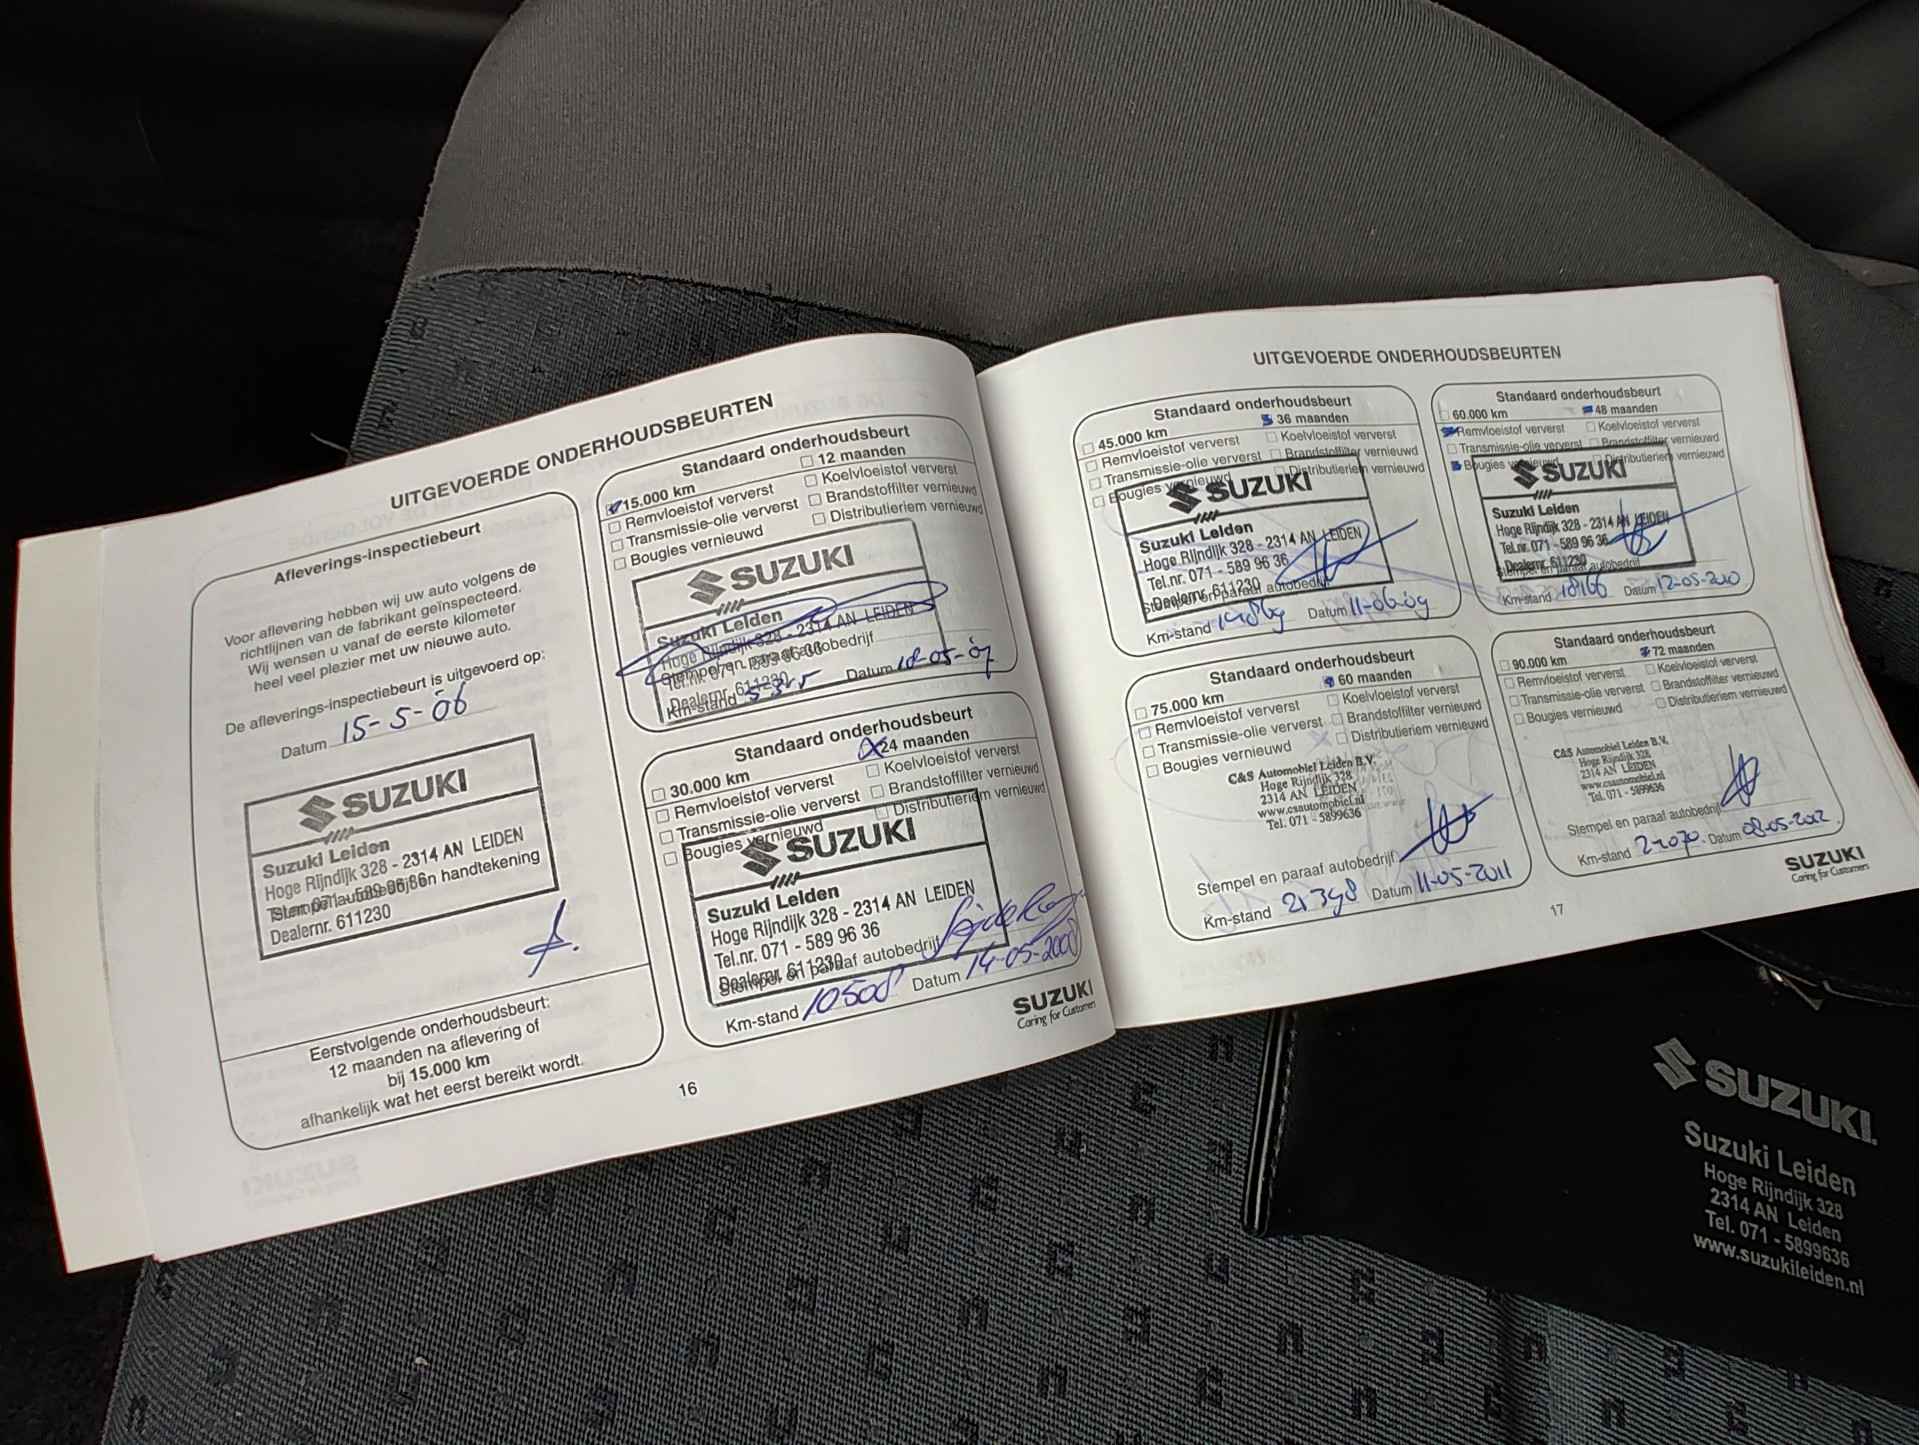 UITGEVOERDE ONDERHOUDSBEURTEN
Afleverings-inspectiebeurt
Voor aflevering hebben wij uw auto volgens de
richtlijnen van de fabrikant geïnspecteerd.
Wij wensen u vanaf de eerste kilometer
heel veel plezier met uw nieuwe auto.
De afleverings-inspectiebeurt is uitgevoerd op:
Datum 15-5-06
SUZUKI
Suzuki Leiden
Hoge Rijndijk 328 - 2314 AN LEIDEN
Dealernr. 611230
Eerstvolgende onderhoudsbeurt:
12 maanden na aflevering of
bij 15.000 km
afhankelijk wat het eerst bereikt wordt.
Standaard onderhoudsbeurt
15.000 km 12 maanden
Remvloeistof ververst Koelvloeistof ververst
Transmissie-olie ververst Brandstoffilter vernieuwd
Bougies vernieuwd Distributieriem vernieuwd
SUZUKI
Suzuki Leiden
Hoge Rijndijk 328 - 2314 AN LEIDEN
Stempel en paraaf autobedrijf
Dealernr. 611230
Km-stand Datum 10-05-07
Standaard onderhoudsbeurt
30.000 km 24 maanden
Remvloeistof ververst Koelvloeistof ververst
Transmissie-olie ververst Brandstoffilter vernieuwd
Bougies vernieuwd Distributieriem vernieuwd
SUZUKI
Suzuki Leiden
Hoge Rijndijk 328 - 2314 AN LEIDEN
Tel.nr. 071 - 589 96 36
Dealernr. 611230
Stempel en paraaf autobedrijf
Km-stand 10508 Datum 14-05-2008
SUZUKI
Caring for Customers
16
UITGEVOERDE ONDERHOUDSBEURTEN
Standaard onderhoudsbeurt
45.000 km 36 maanden
Remvloeistof ververst Koelvloeistof ververst
Transmissie-olie ververst Brandstoffilter vernieuwd
Bougies vernieuwd Distributieriem vernieuwd
SUZUKI
Suzuki Leiden
Hoge Rijndijk 328 - 2314 AN LEIDEN
Tel.nr. 071 - 589 96 36
Dealernr. 611230
Stempel en paraaf autobedrijf
Km-stand Datum 11-06-09
Standaard onderhoudsbeurt
60.000 km 48 maanden
Remvloeistof ververst Koelvloeistof ververst
Transmissie-olie ververst Brandstoffilter vernieuwd
Bougies vernieuwd Distributieriem vernieuwd
SUZUKI
Suzuki Leiden
Hoge Rijndijk 328 - 2314 AN LEIDEN
Tel.nr. 071 - 589 96 36
Dealernr. 611230
Stempel en paraaf autobedrijf
Km-stand 18166 Datum 12-05-2010
Standaard onderhoudsbeurt
75.000 km 60 maanden
Remvloeistof ververst Koelvloeistof ververst
Transmissie-olie ververst Brandstoffilter vernieuwd
Bougies vernieuwd Distributieriem vernieuwd
C&S Automobiel Leiden B.V.
Hoge Rijndijk 328
2314 AN LEIDEN
www.csautomobiel.nl
Tel. 071 - 5899636
Stempel en paraaf autobedrijf
Km-stand Datum 11-05-2011
Standaard onderhoudsbeurt
90.000 km 72 maanden
Remvloeistof ververst Koelvloeistof ververst
Transmissie-olie ververst Brandstoffilter vernieuwd
Bougies vernieuwd Distributieriem vernieuwd
C&S Automobiel Leiden B.V.
Hoge Rijndijk 328
2314 AN LEIDEN
www.csautomobiel.nl
Tel. 071 - 5899636
Stempel en paraaf autobedrijf
Km-stand Datum 08-05-2012
SUZUKI
Caring for Customers
17
SUZUKI
Suzuki Leiden
Hoge Rijndijk 328
2314 AN Leiden
Tel. 071 - 5899636
www.suzukileiden.nl